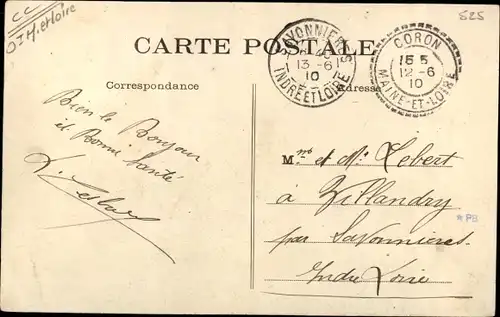 CC
Dt M. et Loire
525
CARTE POSTALE
SAVONNIERES
13-6
10
INDRE ET LOIRE
CORON
15 5
12-6
10
MAINE-ET-LOIRE
Correspondance
Adresse
Bien le Bonjour
et Bonne Santé
Mme et Mr Lebert
à Villandry
par Savonnieres
Indre Loire
*PB